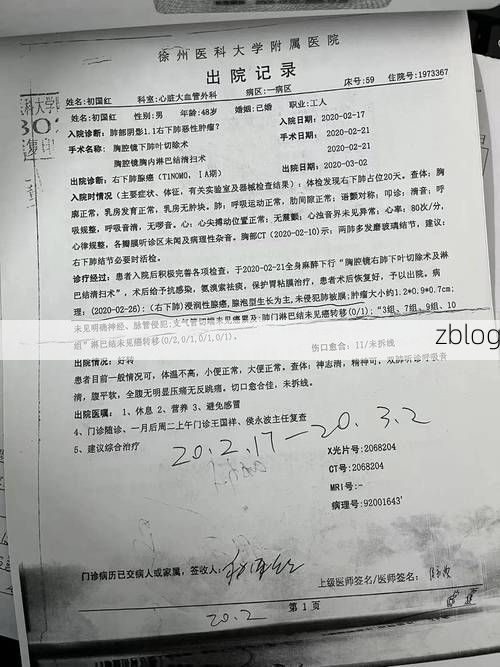 徐州医科大学附属医院
出院记录
姓名:初国红 科室:心脏大血管外科 病区:一病区 床号:59 住院号:1973367
姓名:初国红 性别:男 年龄:48岁 婚姻:已婚 职业:工人
入院诊断:肺部阴影1.1右下肺恶性肿瘤? 入院日期:2020-02-17
手术名称:胸腔镜下肺叶切除术 手术日期:2020-02-21
胸腔镜胸内淋巴结清扫术 2020-02-21
出院诊断:右下肺腺癌(T1N0M0,IA期) 出院日期:2020-03-02
入院时情况(主要症状、体征,有关实验室及器械检查结果):体检发现右下肺占位20天。查体:胸
廓正常,乳房发育正常,乳房无肿块。肺:呼吸运动正常,肋间隙正常;语颤对称;叩诊:清音;呼
吸规整,呼吸音清,无啰音。心:心尖搏动位置正常;无震颤;心浊音界未见异常;心率:80次/分,
心律规整,各瓣膜听诊区未闻及病理性杂音。胸部CT(2020-02-10)示:两肺多发磨玻璃结节,建议:
右下肺结节必要时活检。
诊疗经过:患者入院后积极完善各项检查,于2020-02-21全身麻醉下行"胸腔镜右肺下叶切除术及淋
巴结清扫术",术后给予抗感染,氨溴索祛痰,保护胃粘膜治疗,患者术后恢复好,予以出院。病
理:(2020-02-26):(右下肺)浸润性腺癌,腺泡型生长为主,未侵犯肺被膜;肿瘤大小约1.2*0.9*0.7cm;
未见明确神经、脉管侵犯;支气管切端未见癌累及;肺门淋巴结未见癌转移(0/1);"3组、7组、9组、10
组"淋巴结未见癌转移(0/2,0/1,0/1,0/1)。
zblog
出院情况:好转 伤口愈合:II/未拆线
患者目前一般情况可,体温不高,小便正常,大便正常。查体:神志清,精神可,双肺听诊呼吸音
清,腹平软,全腹无明显压痛无反跳痛。切口愈合佳,未拆线。
出院医嘱:1、休息 2、营养 3、避免感冒
4、门诊随诊、一月后周二上午门诊王国祥、侯永波主任复查
5、建议综合治疗
20.2.17—20.3.2
X光片号:2068204
CT号:2068204
MRI号:-
病理号:92001643'
门诊病历已交病人或家属,签收人:
上级医师签名/医师签名:
第1页
20.2